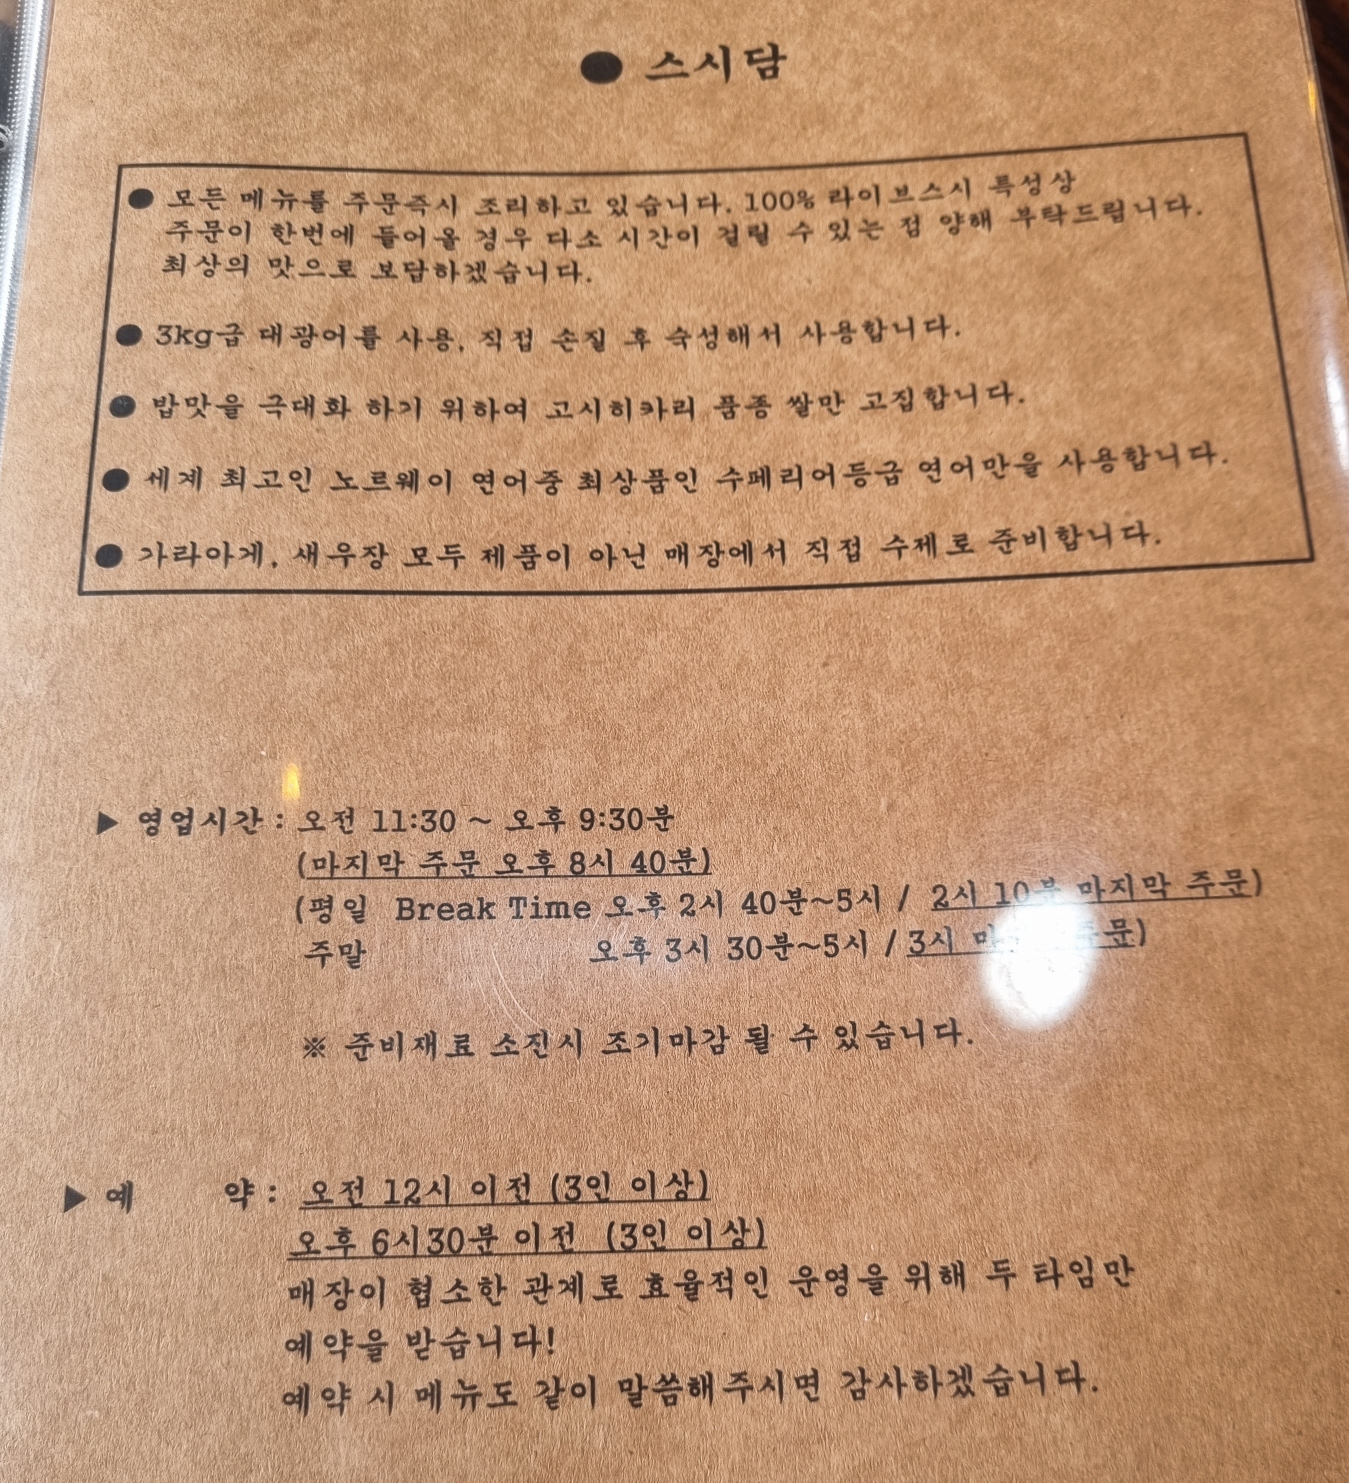 ● 스시담
● 모든 메뉴를 주문즉시 조리하고 있습니다. 100% 라이브스시 특성상
주문이 한번에 들어올 경우 다소 시간이 걸릴 수 있는 점 양해 부탁드립니다.
최상의 맛으로 보답하겠습니다.
● 3kg급 대광어를 사용, 직접 손질 후 숙성해서 사용합니다.
● 밥맛을 극대화 하기 위하여 고시히카리 품종 쌀만 고집합니다.
● 세계 최고인 노르웨이 연어중 최상품인 수페리어등급 연어만을 사용합니다.
● 가라아게, 새우장 모두 제품이 아닌 매장에서 직접 수제로 준비합니다.
▶ 영업시간 : 오전 11:30 ~ 오후 9:30분
(마지막 주문 오후 8시 40분)
(평일 Break Time 오후 2시 40분~5시 / 2시 10분 마지막 주문)
주말 오후 3시 30분~5시 / 3시 주문)
※ 준비재료 소진시 조기마감 될 수 있습니다.
▶ 예 약 : 오전 12시 이전 (3인 이상)
오후 6시30분 이전 (3인 이상)
매장이 협소한 관계로 효율적인 운영을 위해 두 타임만
예약을 받습니다!
예약 시 메뉴도 같이 말씀해주시면 감사하겠습니다.